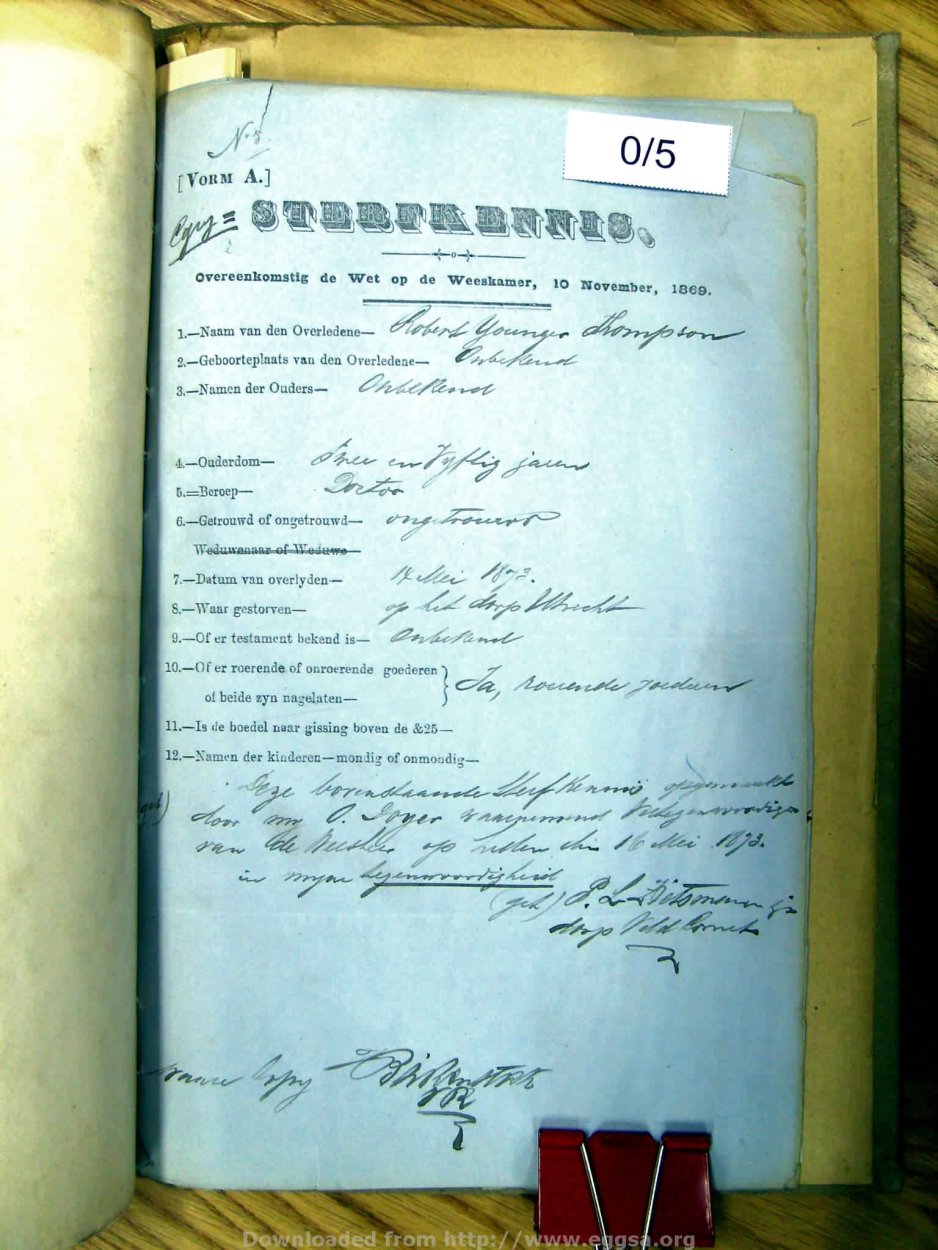 No 5
0/5
[VORM A.]
Copy =
STERFKENNIS.
Overeenkomstig de Wet op de Weeskamer, 10 November, 1869.
1.—Naam van den Overledene— Robert Younger Thompson
2.—Geboorteplaats van den Overledene— Onbekend
3.—Namen der Ouders— Onbekend
4.—Ouderdom— Twee en Vyftig jaren
5.=Beroep— Doctor
6.—Getrouwd of ongetrouwd— ongetrouwd
Weduwenaar of Weduwe—
7.—Datum van overlyden— 14 Mei 1873.
8.—Waar gestorven— op het dorp Utrecht
9.—Of er testament bekend is— Onbekend
10.—Of er roerende of onroerende goederen
of beide zyn nagelaten— Ja, roerende goederen
11.—Is de boedel naar gissing boven de &25—
12.—Namen der kinderen—mondig of onmondig—
Deze bovenstaande Sterf Kennis opgemaakt
door my waarnemend
van de op heden den 16 Mei 1873.
in myne tegenwoordigheid
(get) P. L.
dorp Veld Cornet
ware Copy
Downloaded from http://www.eggsa.org